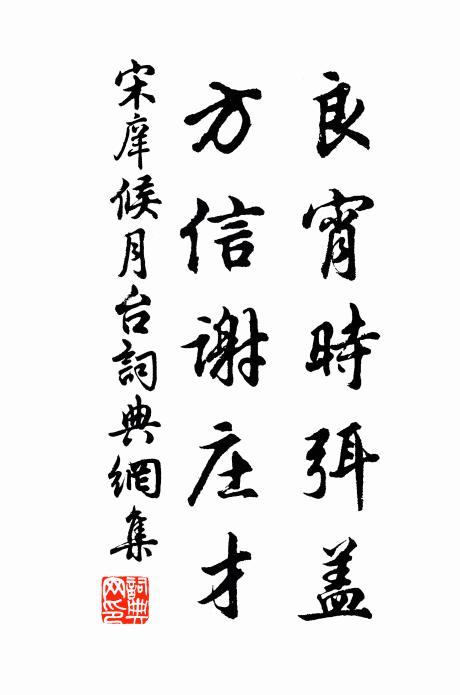 良宵時弭盖
方信謝庄才
宋庠候月台詞典網集
詞典网印